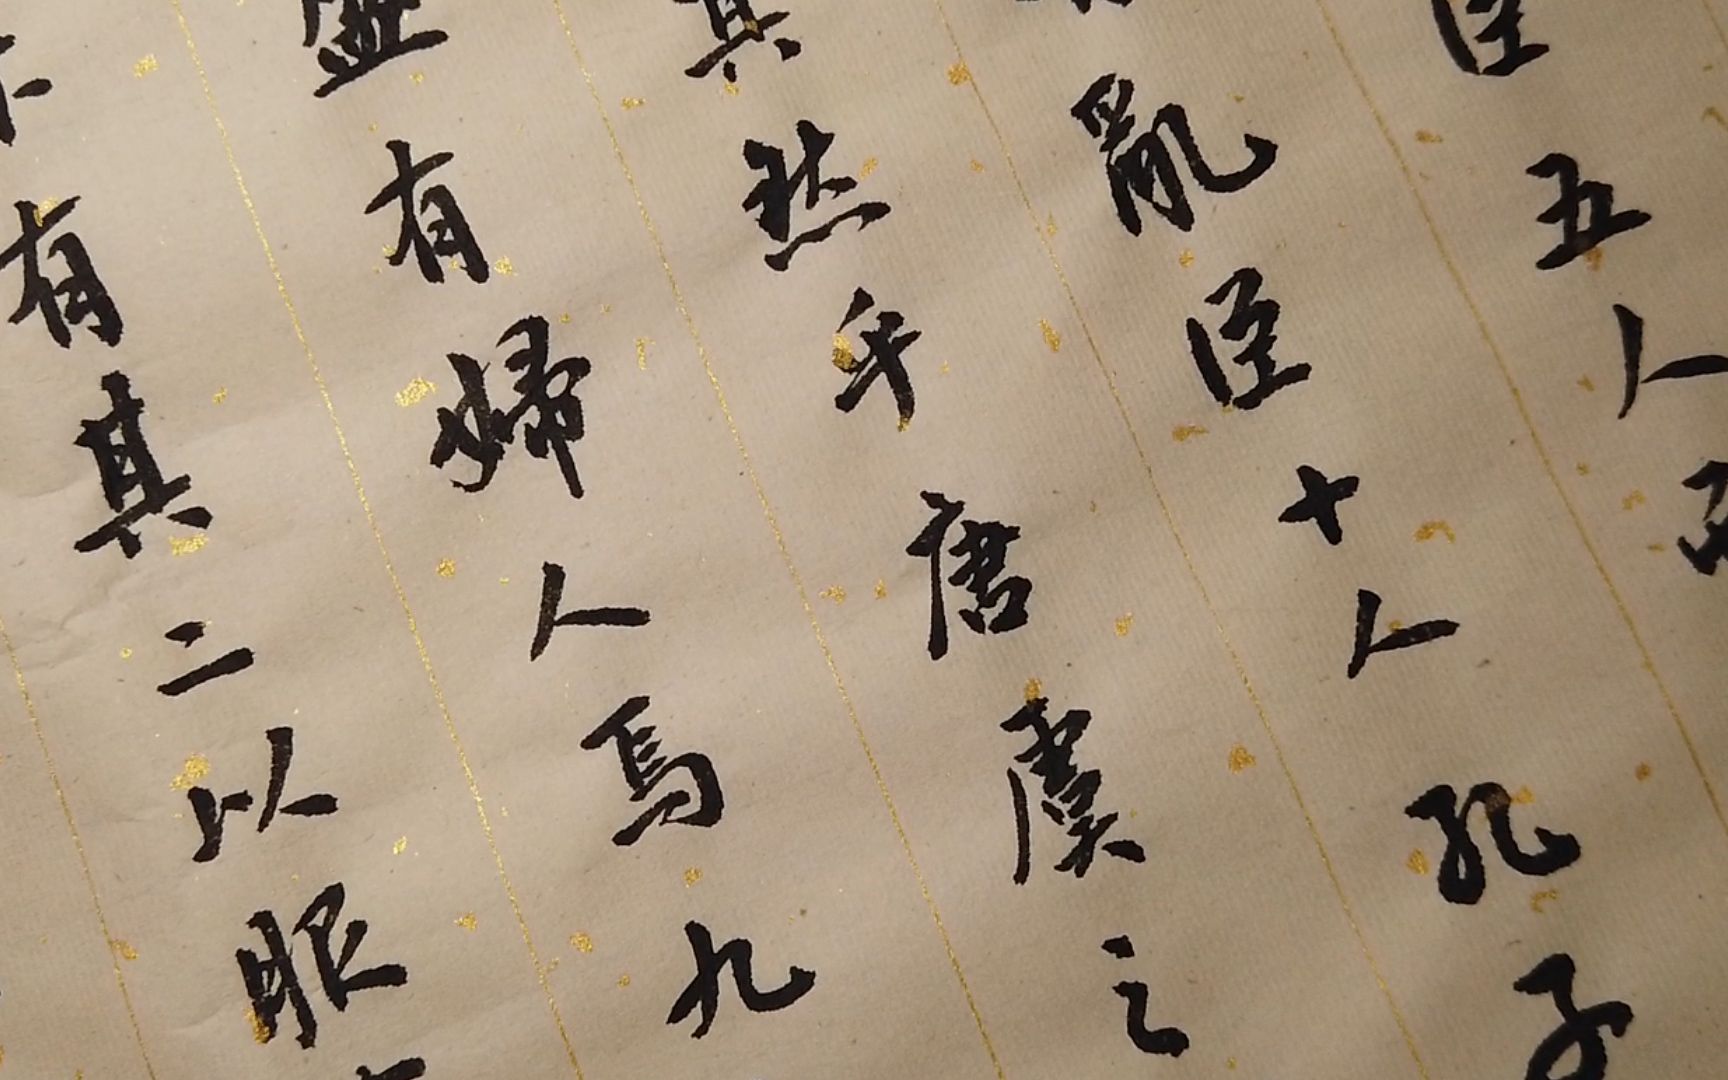 臣五人而
亂臣十人孔子
其然乎唐虞之
盛有婦人焉九
有其二以服